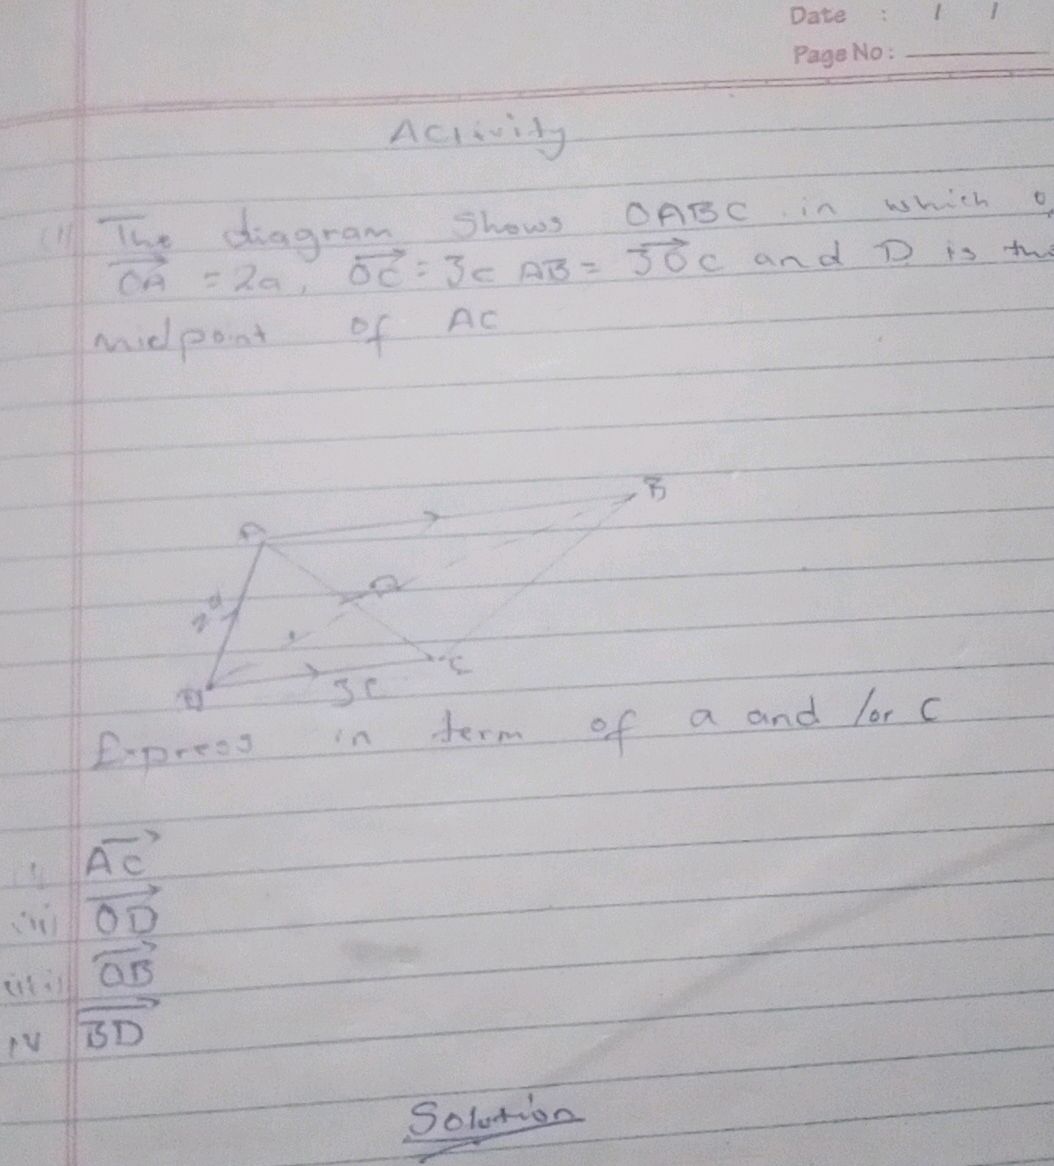 Date : / /
Page No:
Activity
(1) The diagram Shows OABC in which
OA = 2a, OC = 3c AB = 3OC and D is the
midpoint of AC
B
A
D
2a
C
3c
Express in term of a and /or C
i) AC
(ii) OD
(iii) OB
IV BD
Solution